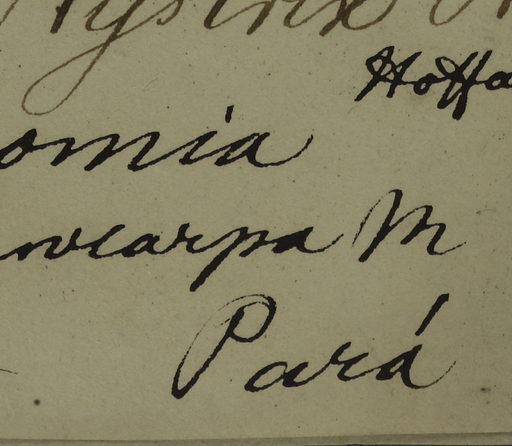 Hystrix
Hoffa
omia
carpa M
Pará